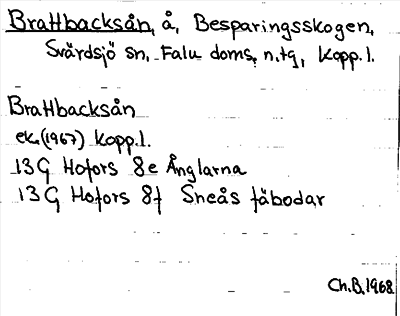 Brattbacksån, å, Besparingsskogen,
Svärdsjö sn, Falu doms. n. tg, Kopp. l.
Brattbacksån
ek. (1967) Kopp. l.
13G Hofors 8e Ånglarna
13G Hofors 8f Sneås fäbodar
Ch.B. 1968